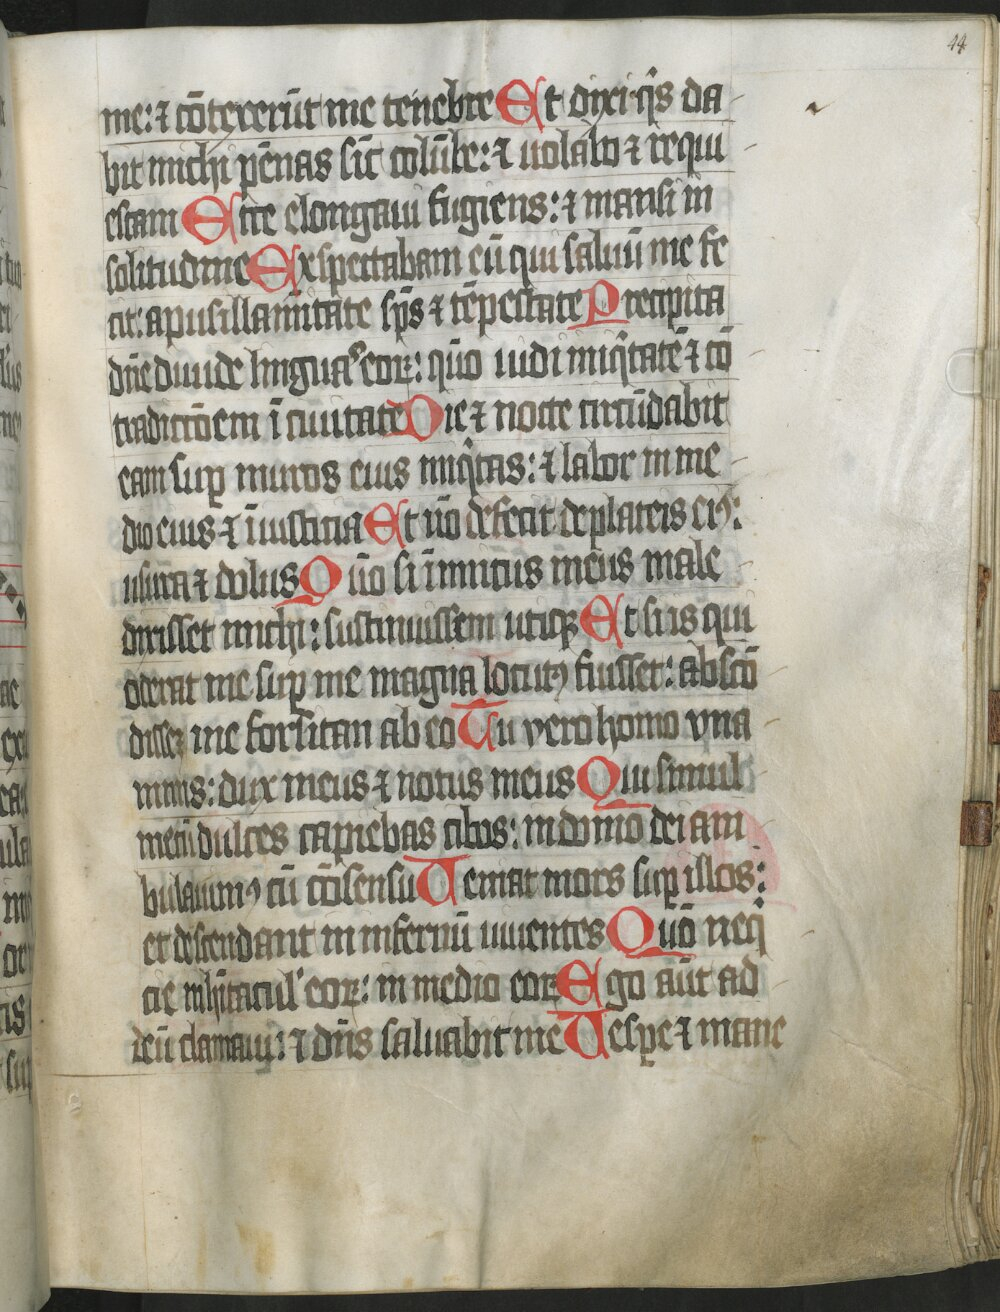 44
me: ⁊ cõtexerũt me tenebre Et dixi q̾s da
bit michi pẽnas sic̃ colũbe: ⁊ uolabo ⁊ requi
escam Ecce elongaui fugiens: ⁊ mansi in
solitudine Exspectabam eũ qui saluũ me fe
cit: a pusillanimitate sp̃s ⁊ tẽpestate Precipita
dñe diuide linguas eoꝝ: q̃m uidi iniq̾tatẽ ⁊ cõ
tradictõem ĩ ciuitate Die ⁊ nocte circũdabit
eam suꝑ muros eius iniq̾tas: ⁊ labor in me
dio eius ⁊ ĩiusticia Et nõ defecit de plateis eiꝰ:
usura ⁊ dolus Qm̃ si inimicus meus male
dixisset michi: sustinuissem utiqꝫ Et si is qui
oderat me suꝑ me magna locutꝰ fuisset: abscõ
dissẽ me forsitan ab eo Tu vero homo vna
nimis: dux meus ⁊ notus meus Qui simul
mecũ dulces capiebas cibos: in domo dei am
bulauimꝰ cũ cõsensu Ueniat mors suꝑ illos:
et descendant in infernũ uiuentes Qm̃ neq̾
cie ĩ habitacul' eoꝝ: in medio eoꝝ Ego aũt ad
deũ clamaui: ⁊ dñs saluabit me Uesꝑe ⁊ mane